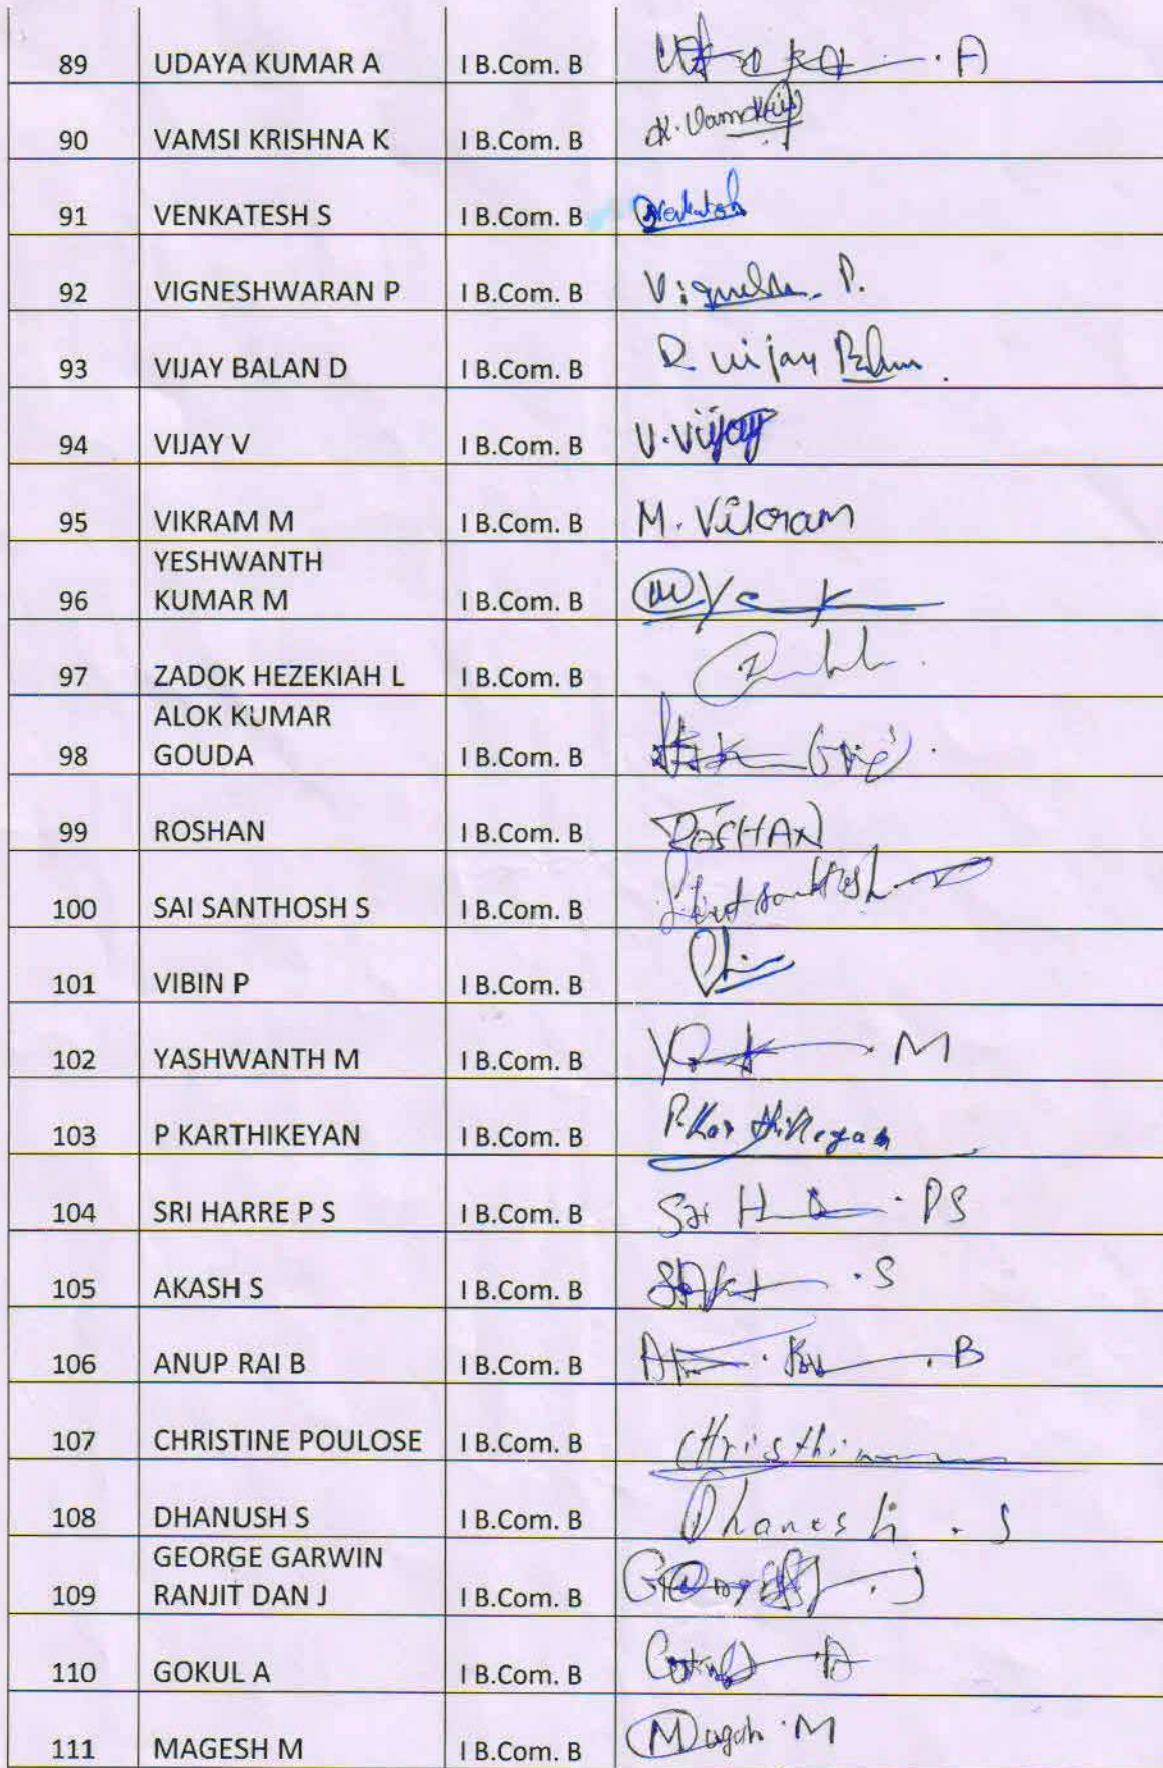 89 UDAYA KUMAR A I B.Com. B
90 VAMSI KRISHNA K I B.Com. B
91 VENKATESH S I B.Com. B Venkatesh
92 VIGNESHWARAN P I B.Com. B
93 VIJAY BALAN D I B.Com. B D vijay Balan
94 VIJAY V I B.Com. B V. Vijay
95 VIKRAM M I B.Com. B M. Vikram
YESHWANTH
96 KUMAR M I B.Com. B
97 ZADOK HEZEKIAH L I B.Com. B
ALOK KUMAR
98 GOUDA I B.Com. B
99 ROSHAN I B.Com. B ROSHAN
100 SAI SANTHOSH S I B.Com. B
101 VIBIN P I B.Com. B
102 YASHWANTH M I B.Com. B M
103 P KARTHIKEYAN I B.Com. B P. Karthikeyan
104 SRI HARRE P S I B.Com. B Sri H PS
105 AKASH S I B.Com. B S
106 ANUP RAI B I B.Com. B B
107 CHRISTINE POULOSE I B.Com. B
108 DHANUSH S I B.Com. B Dhanesh . S
GEORGE GARWIN
109 RANJIT DAN J I B.Com. B J
110 GOKUL A I B.Com. B
111 MAGESH M I B.Com. B Magesh . M